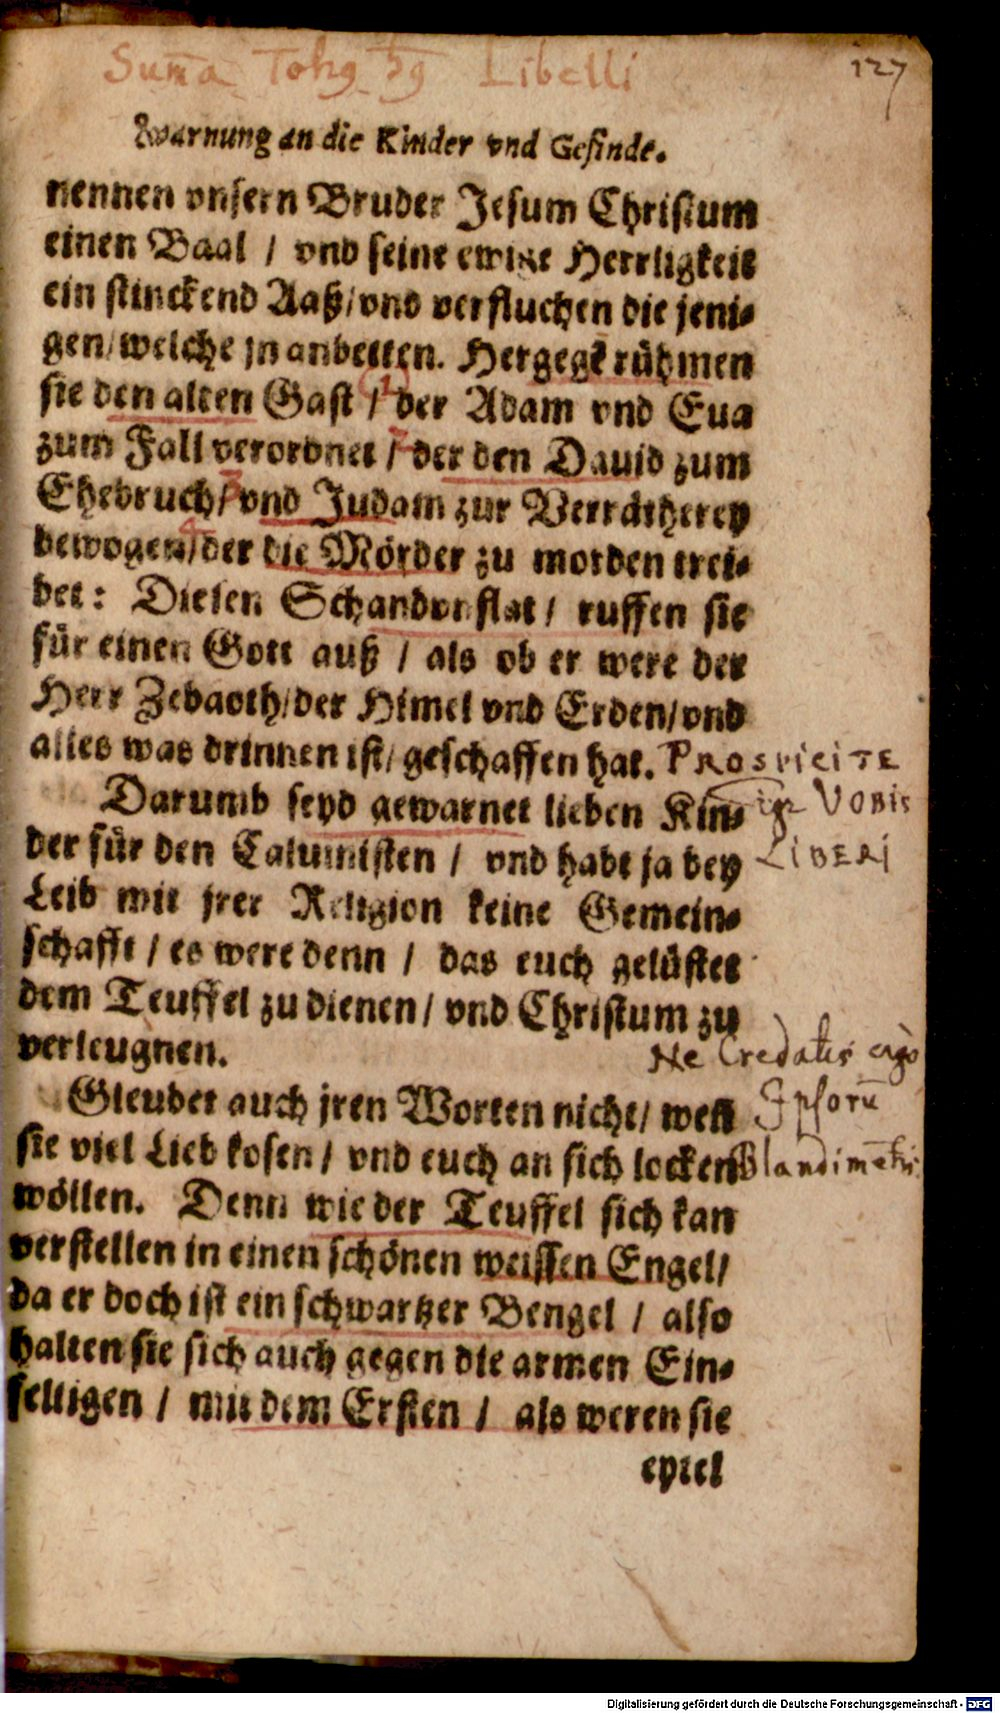 Sum̃a Tohg hg Libelli
127
Warnung an die Kinder vnd Gesinde.
nennen vnsern Bruder Jesum Christum
einen Baal / vnd seine ewige Herrligkeit
ein stinckend Aaß/vnd verfluchen die jeni-
gen/welche jn anbetten. Hergegẽ rühmen
sie den alten Gast / der Adam vnd Eua
zum Fall verordnet / der den Dauid zum
Ehebruch/vnd Judam zur Verrätherey
bewogen/der die Mörder zu morden trei-
bet: Diesen Schandvnflat / ruffen sie
für einen Gott auß / als ob er were der
Herr Zebaoth/der Himel vnd Erden/vnd
alles was drinnen ist/geschaffen hat.
PROSPICITE
VOBIS
LIBERI
Darumb seyd gewarnet lieben Kin-
der für den Caluinisten / vnd habt ja bey
Leib mit jrer Religion keine Gemein-
schafft / es were denn / das euch gelüstet
dem Teuffel zu dienen / vnd Christum zu
verleugnen.
Ne Credatis ergò
Ipsorũ
Blandimẽtis
Gleubet auch jren Worten nicht/ weñ
sie viel Lieb kosen / vnd euch an sich locken
wöllen. Denn wie der Teuffel sich kan
verstellen in einen schönen weissen Engel/
da er doch ist ein schwartzer Bengel / also
halten sie sich auch gegen die armen Ein-
felligen / mit dem Ersten / als weren sie
eytel
Digitalisierung gefördert durch die Deutsche Forschungsgemeinschaft - DFG